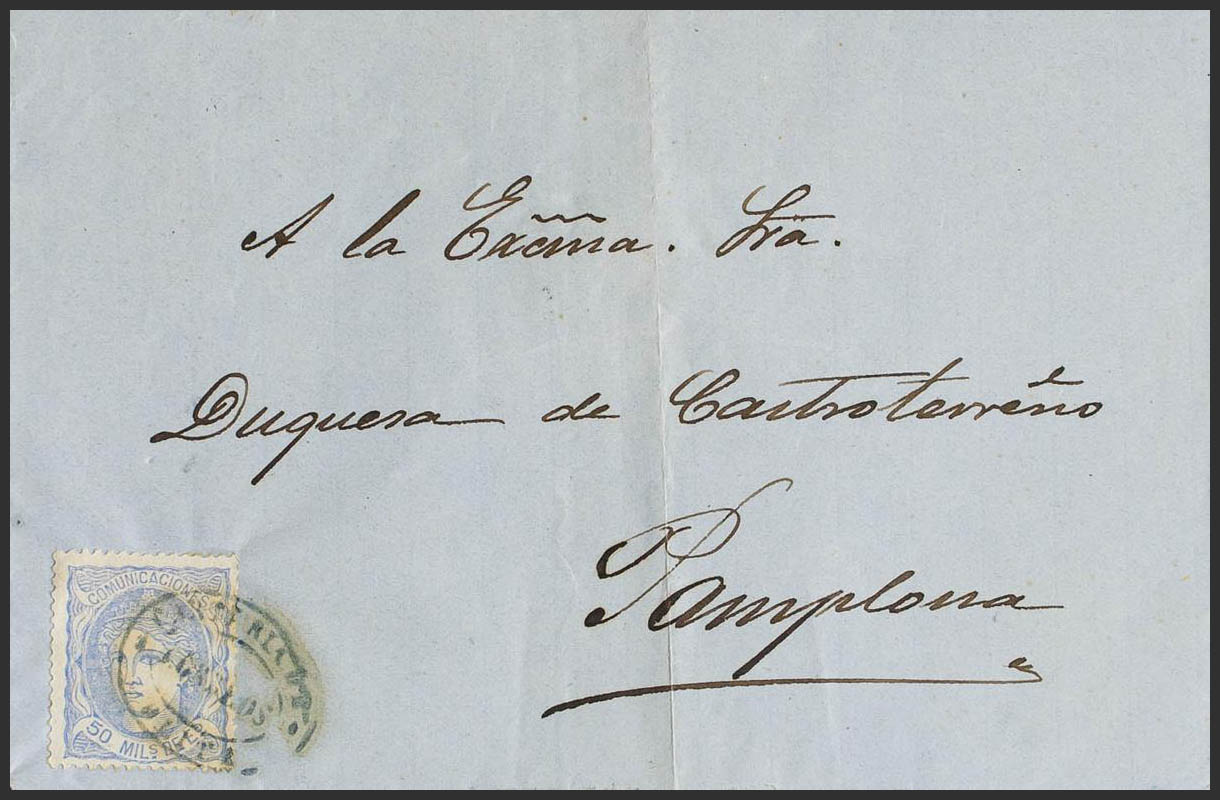 A la Excma. Sra.
Duquesa de Castroterreño
Pamplona
COMUNICACIONES
50 MILS